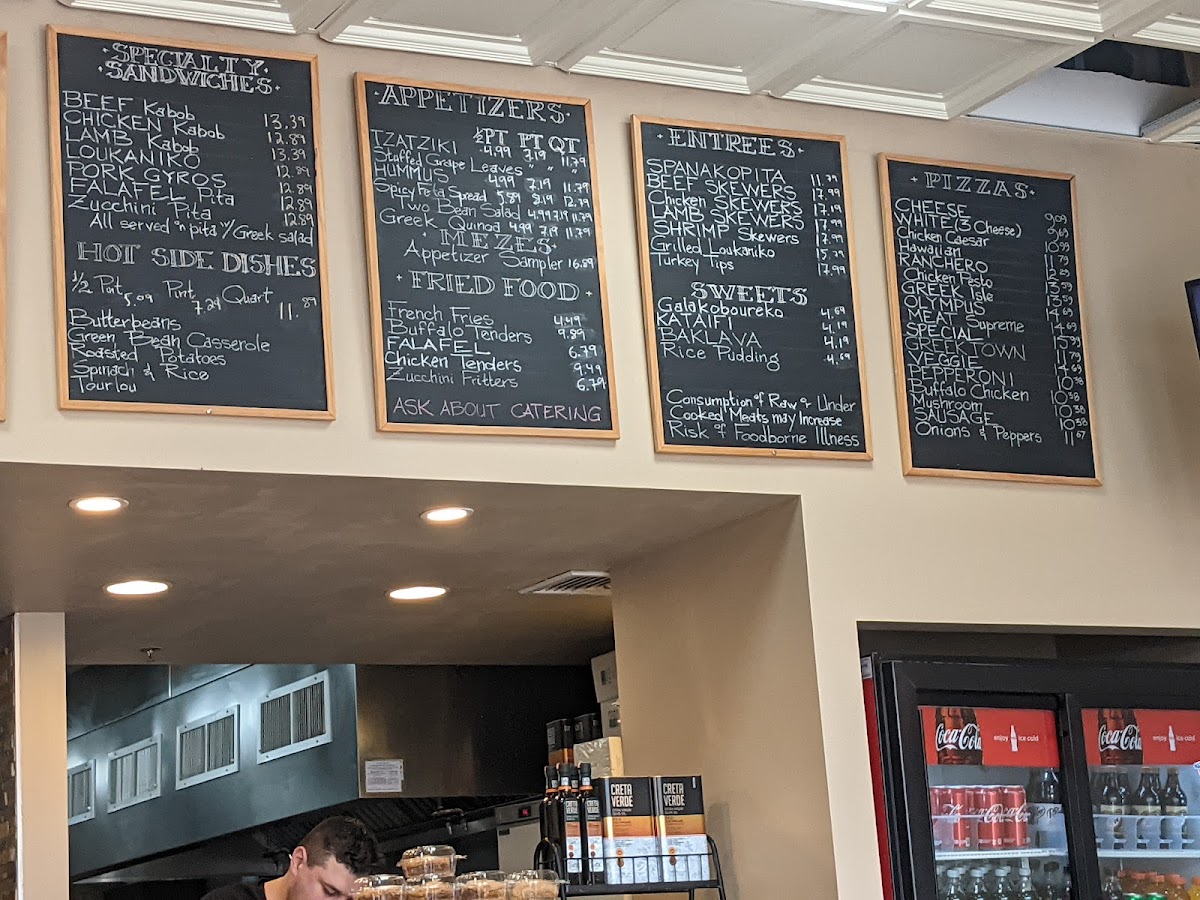 SPECIALTY
SANDWICHES
BEEF Kabob 13.39
CHICKEN Kabob 12.89
LAMB Kabob 13.39
LOUKANIKO 12.89
PORK GYROS 12.89
FALAFEL Pita 12.89
Zucchini Pita 12.89
All served on pita w/ Greek salad
HOT SIDE DISHES
1/2 Pint 5.09 Pint 7.29 Quart 11.89
Butterbeans
Green Bean Casserole
Roasted Potatoes
Spinach & Rice
Tourlou
APPETIZERS
½PT PT QT
TZATZIKI 4.99 7.19 11.79
Stuffed Grape Leaves " " "
HUMMUS 4.99 7.19 11.79
Spicy Feta Spread 5.89 8.19 12.79
Two Bean Salad 4.99 7.19 11.79
Greek Quinoa 4.99 7.19 11.79
MEZES
Appetizer Sampler 16.89
FRIED FOOD
French Fries 4.49
Buffalo Tenders 9.89
FALAFEL 6.79
Chicken Tenders 9.49
Zucchini Fritters 6.79
ASK ABOUT CATERING
ENTREES
SPANAKOPITA 11.79
BEEF SKEWERS 17.99
Chicken SKEWERS 17.19
LAMB SKEWERS 17.99
SHRIMP Skewers 17.99
Grilled Loukaniko 15.79
Turkey Tips 17.99
SWEETS
Galakoboureko 4.69
KATAIFI 4.19
BAKLAVA 4.19
Rice Pudding 4.69
Consumption of Raw or Under
Cooked Meats may Increase
Risk of Foodborne Illness
PIZZAS
CHEESE 9.09
WHITE (3 Cheese)
Chicken Caesar
Hawaiian
RANCHERO
Chicken Pesto
GREEK Isle
OLYMPUS
MEAT Supreme
SPECIAL
GREEK TOWN
VEGGIE
PEPPERONI
Buffalo Chicken
Mushroom
SAUSAGE 10.38
Onions & Peppers 11.67
CRETA
VERDE
CRETA
VERDE
Coca-Cola
enjoy ice cold
Coca-Cola
enjoy ice cold